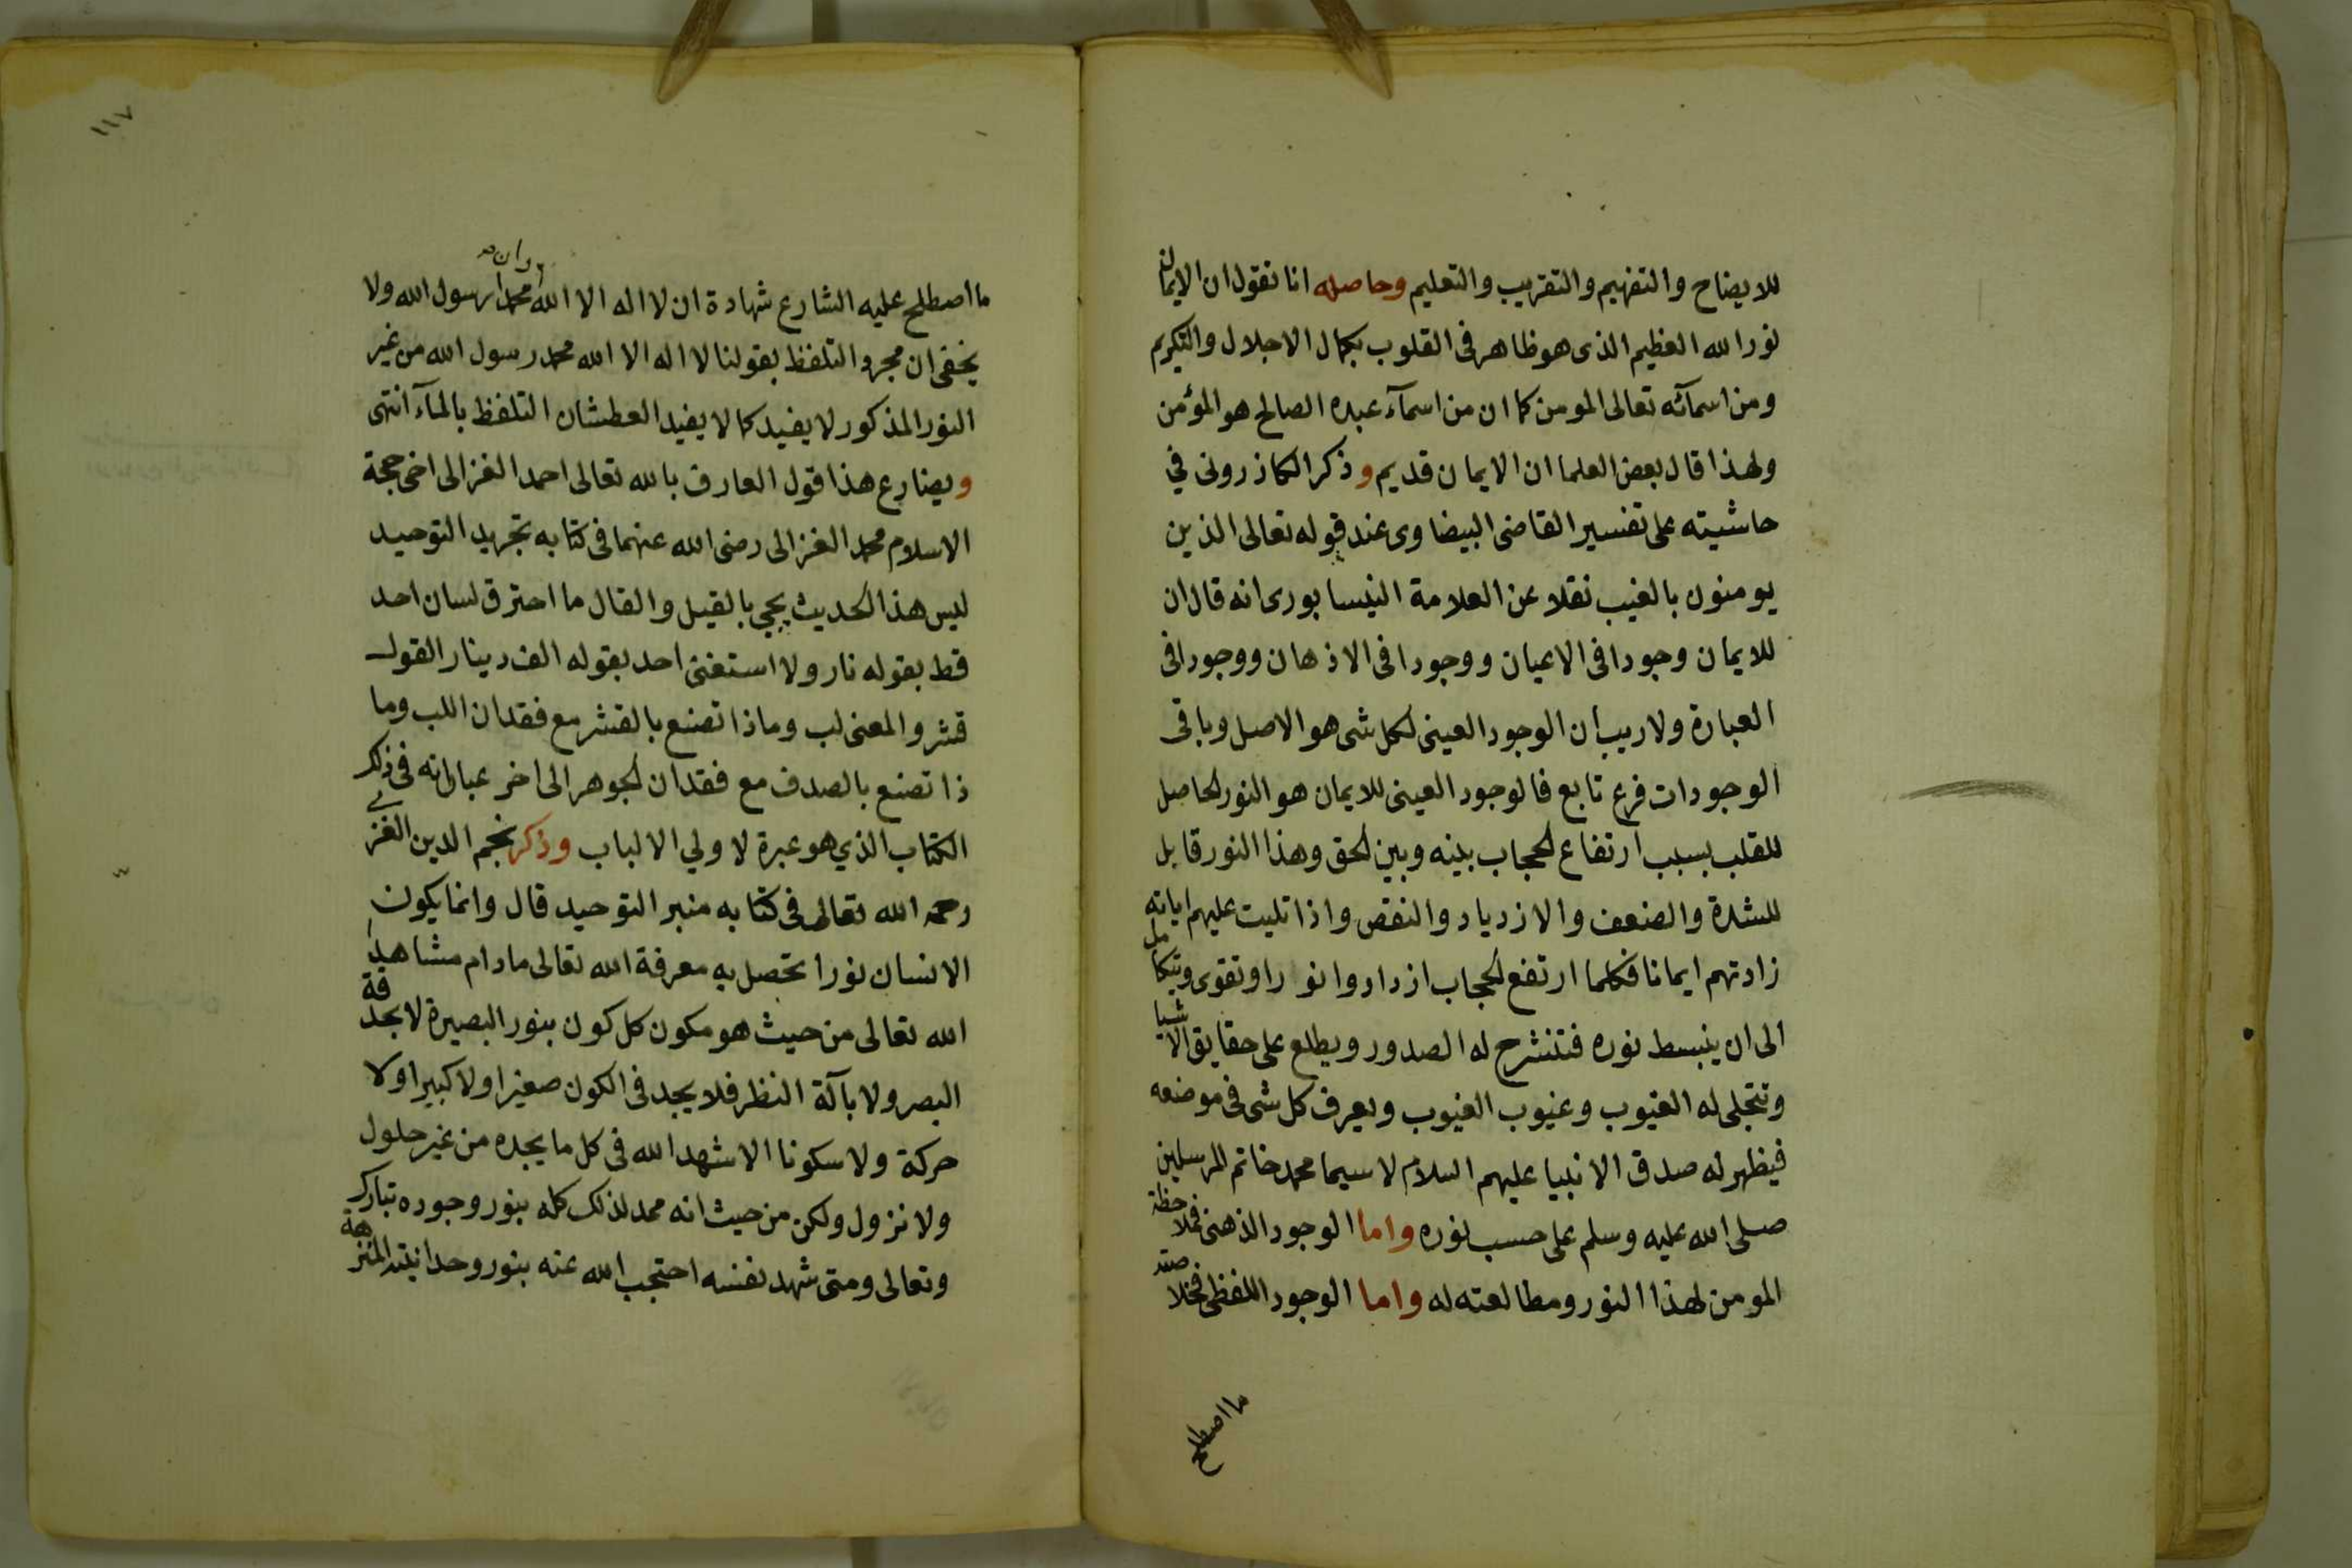 للايضاح والتفهيم والتقريب والتعليم وحاصله انا نقول ان الايمان
نور الله العظيم الذى هو ظاهر فى القلوب بكمال الاجلال والتكريم
ومن اسمآئه تعالى المومن كما ان من اسمآء عبده الصالح هو المؤمن
ولهذا قال بعض العلما ان الايمان قديم وذكر الكازرونى في
حاشيته على تفسير القاضى البيضاوى عند قوله تعالى الذين
يومنون بالغيب نقلا عن العلامة النيسابورى انه قال ان
للايمان وجودا فى الاعيان ووجودا فى الاذهان ووجودا فى
العبارة ولا ريب ان الوجود العينى لكل شى هو الاصل وباقى
الوجودات فرع تابع فالوجود العينى للايمان هو النور الحاصل
للقلب بسبب ارتفاع الحجاب بينه وبين الحق وهذا النور قابل
للشدة والضعف والازدياد والنقص واذا تليت عليهم اياته
زادتهم ايمانا فكلما ارتفع الحجاب ازدادوا نورا وتقوى ويتكامل
الى ان ينبسط نوره فتنشرح له الصدور ويطلع على حقايق الاشيا
وتتجلى له الغيوب وغيوب الغيوب ويعرف كل شى فى موضعه
فيظهر له صدق الانبيا عليهم السلام لا سيما محمد خاتم المرسلين
صلى الله عليه وسلم على حسب نوره واما الوجود الذهنى فملاحظة
المومن لهذا النور ومطالعته له واما الوجود اللفظى فخلاصته
ما اصطلح
١١٧
ما اصطلح عليه الشارع شهادة ان لا اله الا الله وان محمدا رسول الله ولا
يخفى ان مجرد التلفظ بقولنا لا اله الا الله محمد رسول الله من غير
النور المذكور لا يفيد كما لا يفيد العطشان التلفظ بالمآء انتهى
ويضارع هذا قول العارف بالله تعالى احمد الغزالى اخى حجة
الاسلام محمد الغزالى رضى الله عنهما فى كتابه تجريد التوحيد
ليس هذا الحديث يجي بالقيل والقال ما احترق لسان احد
قط بقوله نار ولا استغنى احد بقوله الف دينار القول
قشر والمعنى لب وماذا تصنع بالقشر مع فقدان اللب وما
ذا تصنع بالصدف مع فقدان الجوهر الى اخر عباراته فى ذلك
الكتاب الذي هو عبرة لاولي الالباب وذكر نجم الدين الغزي
رحمه الله تعالى فى كتابه منبر التوحيد قال وانما يكون
الانسان نورا تحصل به معرفة الله تعالى مادام مشاهدا
الله تعالى من حيث هو مكون كل كون بنور البصيرة لا بحدقة
البصر ولا بآلة النظر فلا يجد فى الكون صغيرا ولا كبيرا ولا
حركة ولا سكونا الا شهد الله فى كل ما يجده من غير حلول
ولا نزول ولكن من حيث انه ممد لذلك كله بنور وجوده تبارك
وتعالى ومتى شهد نفسه احتجب الله عنه بنور وحدانيته المنزهة